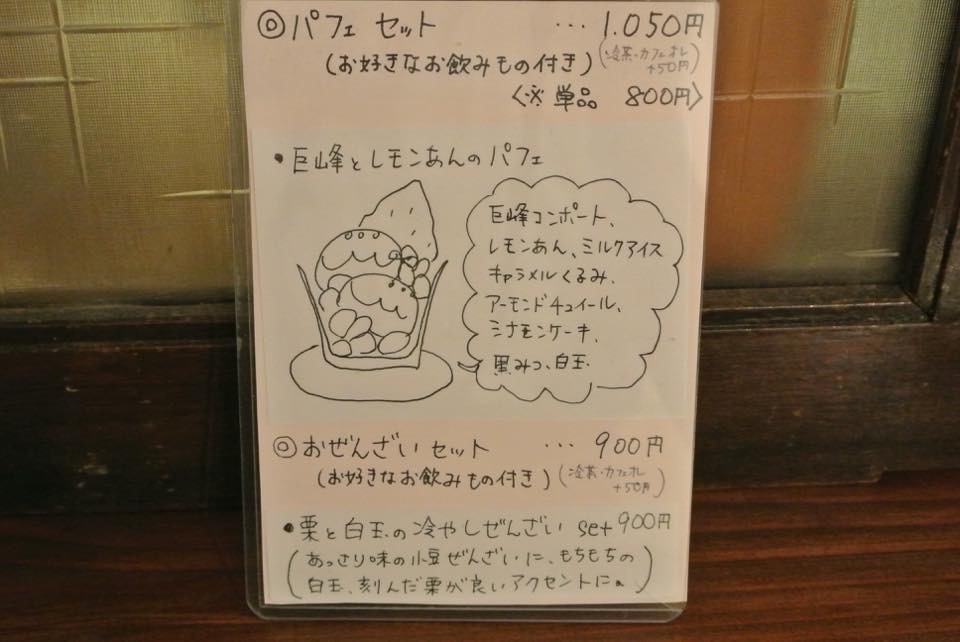 ◎パフェ セット ・・・1.050円
(お好きなお飲みもの付き) (冷茶・カフェオレ +50円)
〈※単品 800円〉
・巨峰とレモンあんのパフェ
巨峰コンポート、
レモンあん、ミルクアイス
キャラメルくるみ、
アーモンドチュイール、
シナモンケーキ、
黒みつ、白玉
◎おぜんざいセット ・・・ 900円
(お好きなお飲みもの付き) (冷茶・カフェオレ +50円)
・栗と白玉の冷やしぜんざい set 900円
(あっさり味の小豆ぜんざいに、もちもちの
白玉、刻んだ栗が良いアクセントに。)